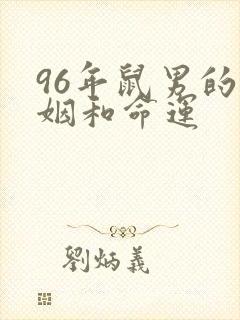 96年鼠男的
姻和命运
劉炳義